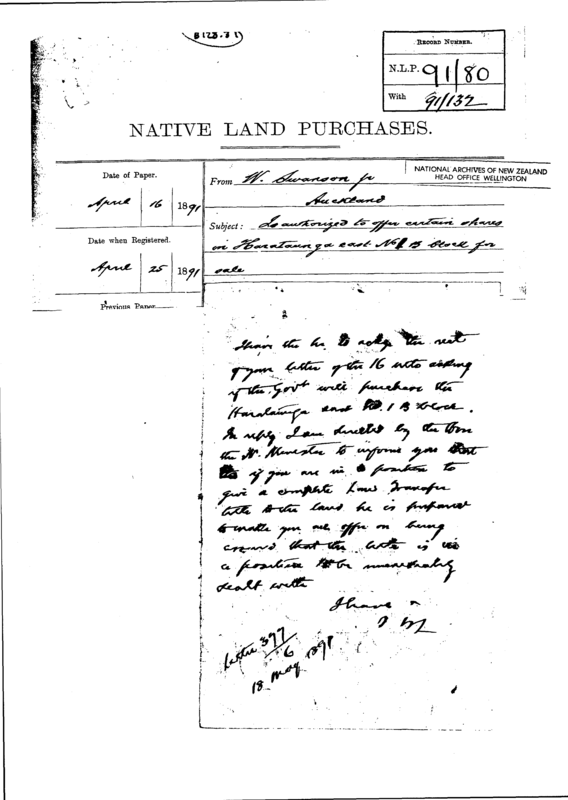 B123.31
RECORD NUMBER.
N.L.P. 91/80
With 91/132
NATIVE LAND PURCHASES.
Date of Paper.
April 16 1891
Date when Registered.
April 25 1891
Previous Paper.
From W. Swanson jr
Auckland
NATIONAL ARCHIVES OF NEW ZEALAND
HEAD OFFICE WELLINGTON
Subject: Is authorized to offer certain shares
in Harataunga east No 1 B block for
sale
I have the hr. to ackge the rect
of your letter of the 16 inst asking
if the Govt will purchase the
Harataunga east No. 1 B block.
In reply I am directed by the Hon
the N. Minister to inform you that
if you are in a position to
give a complete Land Transfer
title to the land he is prepared
to make you an offer on being
assured that the title is in
a position to be immediately
dealt with
I have
Letter 397/6
18 May 1891